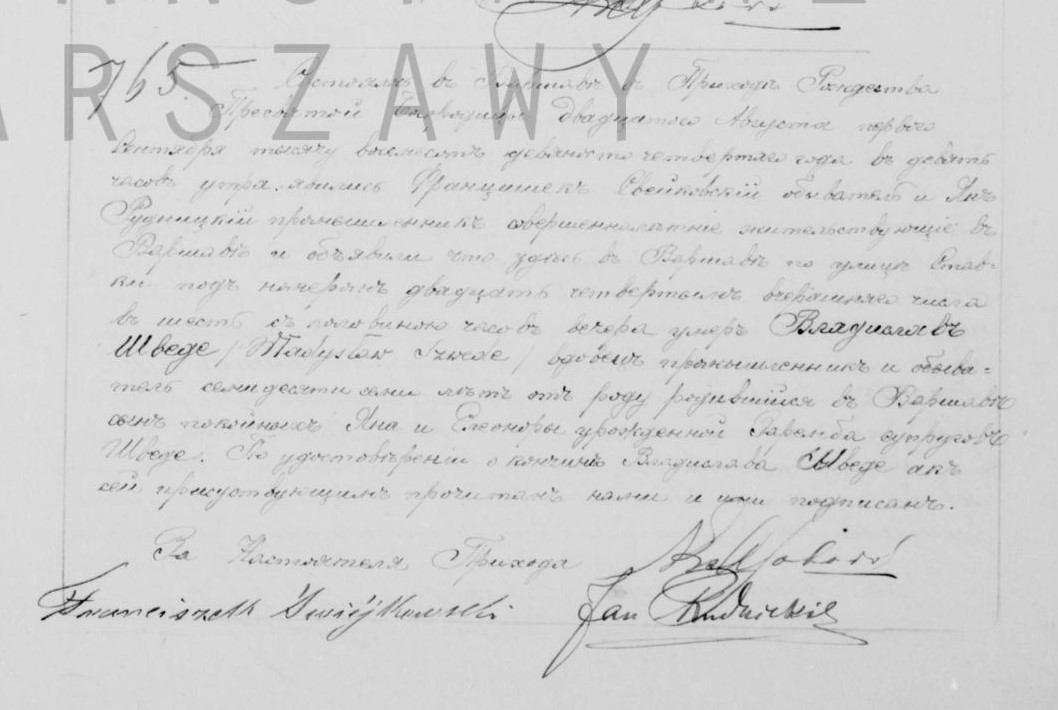 ARSZAWY
765.
Состоялось въ Варшавѣ въ Приходѣ Рождества
Пресвятой Богородицы двадцатаго Августа перваго
Сентября тысячу восемьсотъ девяносто четвертаго года въ девять
часовъ утра. явились Францишекъ Свейковскій обыватель и Янъ
Рудницкій промышленникъ совершеннолѣтніе жительствующіе въ
Варшавѣ и объявили что здѣсь въ Варшавѣ по улицѣ Став-
ки подъ номеромъ двадцать четвертымъ вчерашняго числа
въ шесть съ половиною часовъ вечера умеръ Владиславъ
Шведе /Władysław Szwede/ вдовецъ промышленникъ и обыва-
тель семидесяти семи лѣтъ отъ роду родившійся въ Варшавѣ
сынъ покойныхъ Яна и Елеоноры урожденной Заремба супруговъ
Шведе. По удостовѣреніи о кончинѣ Владислава Шведе актъ
сей присутствующимъ прочитанъ нами и ими подписанъ.
За Настоятеля Прихода
Franciszek Jan Rudnicki